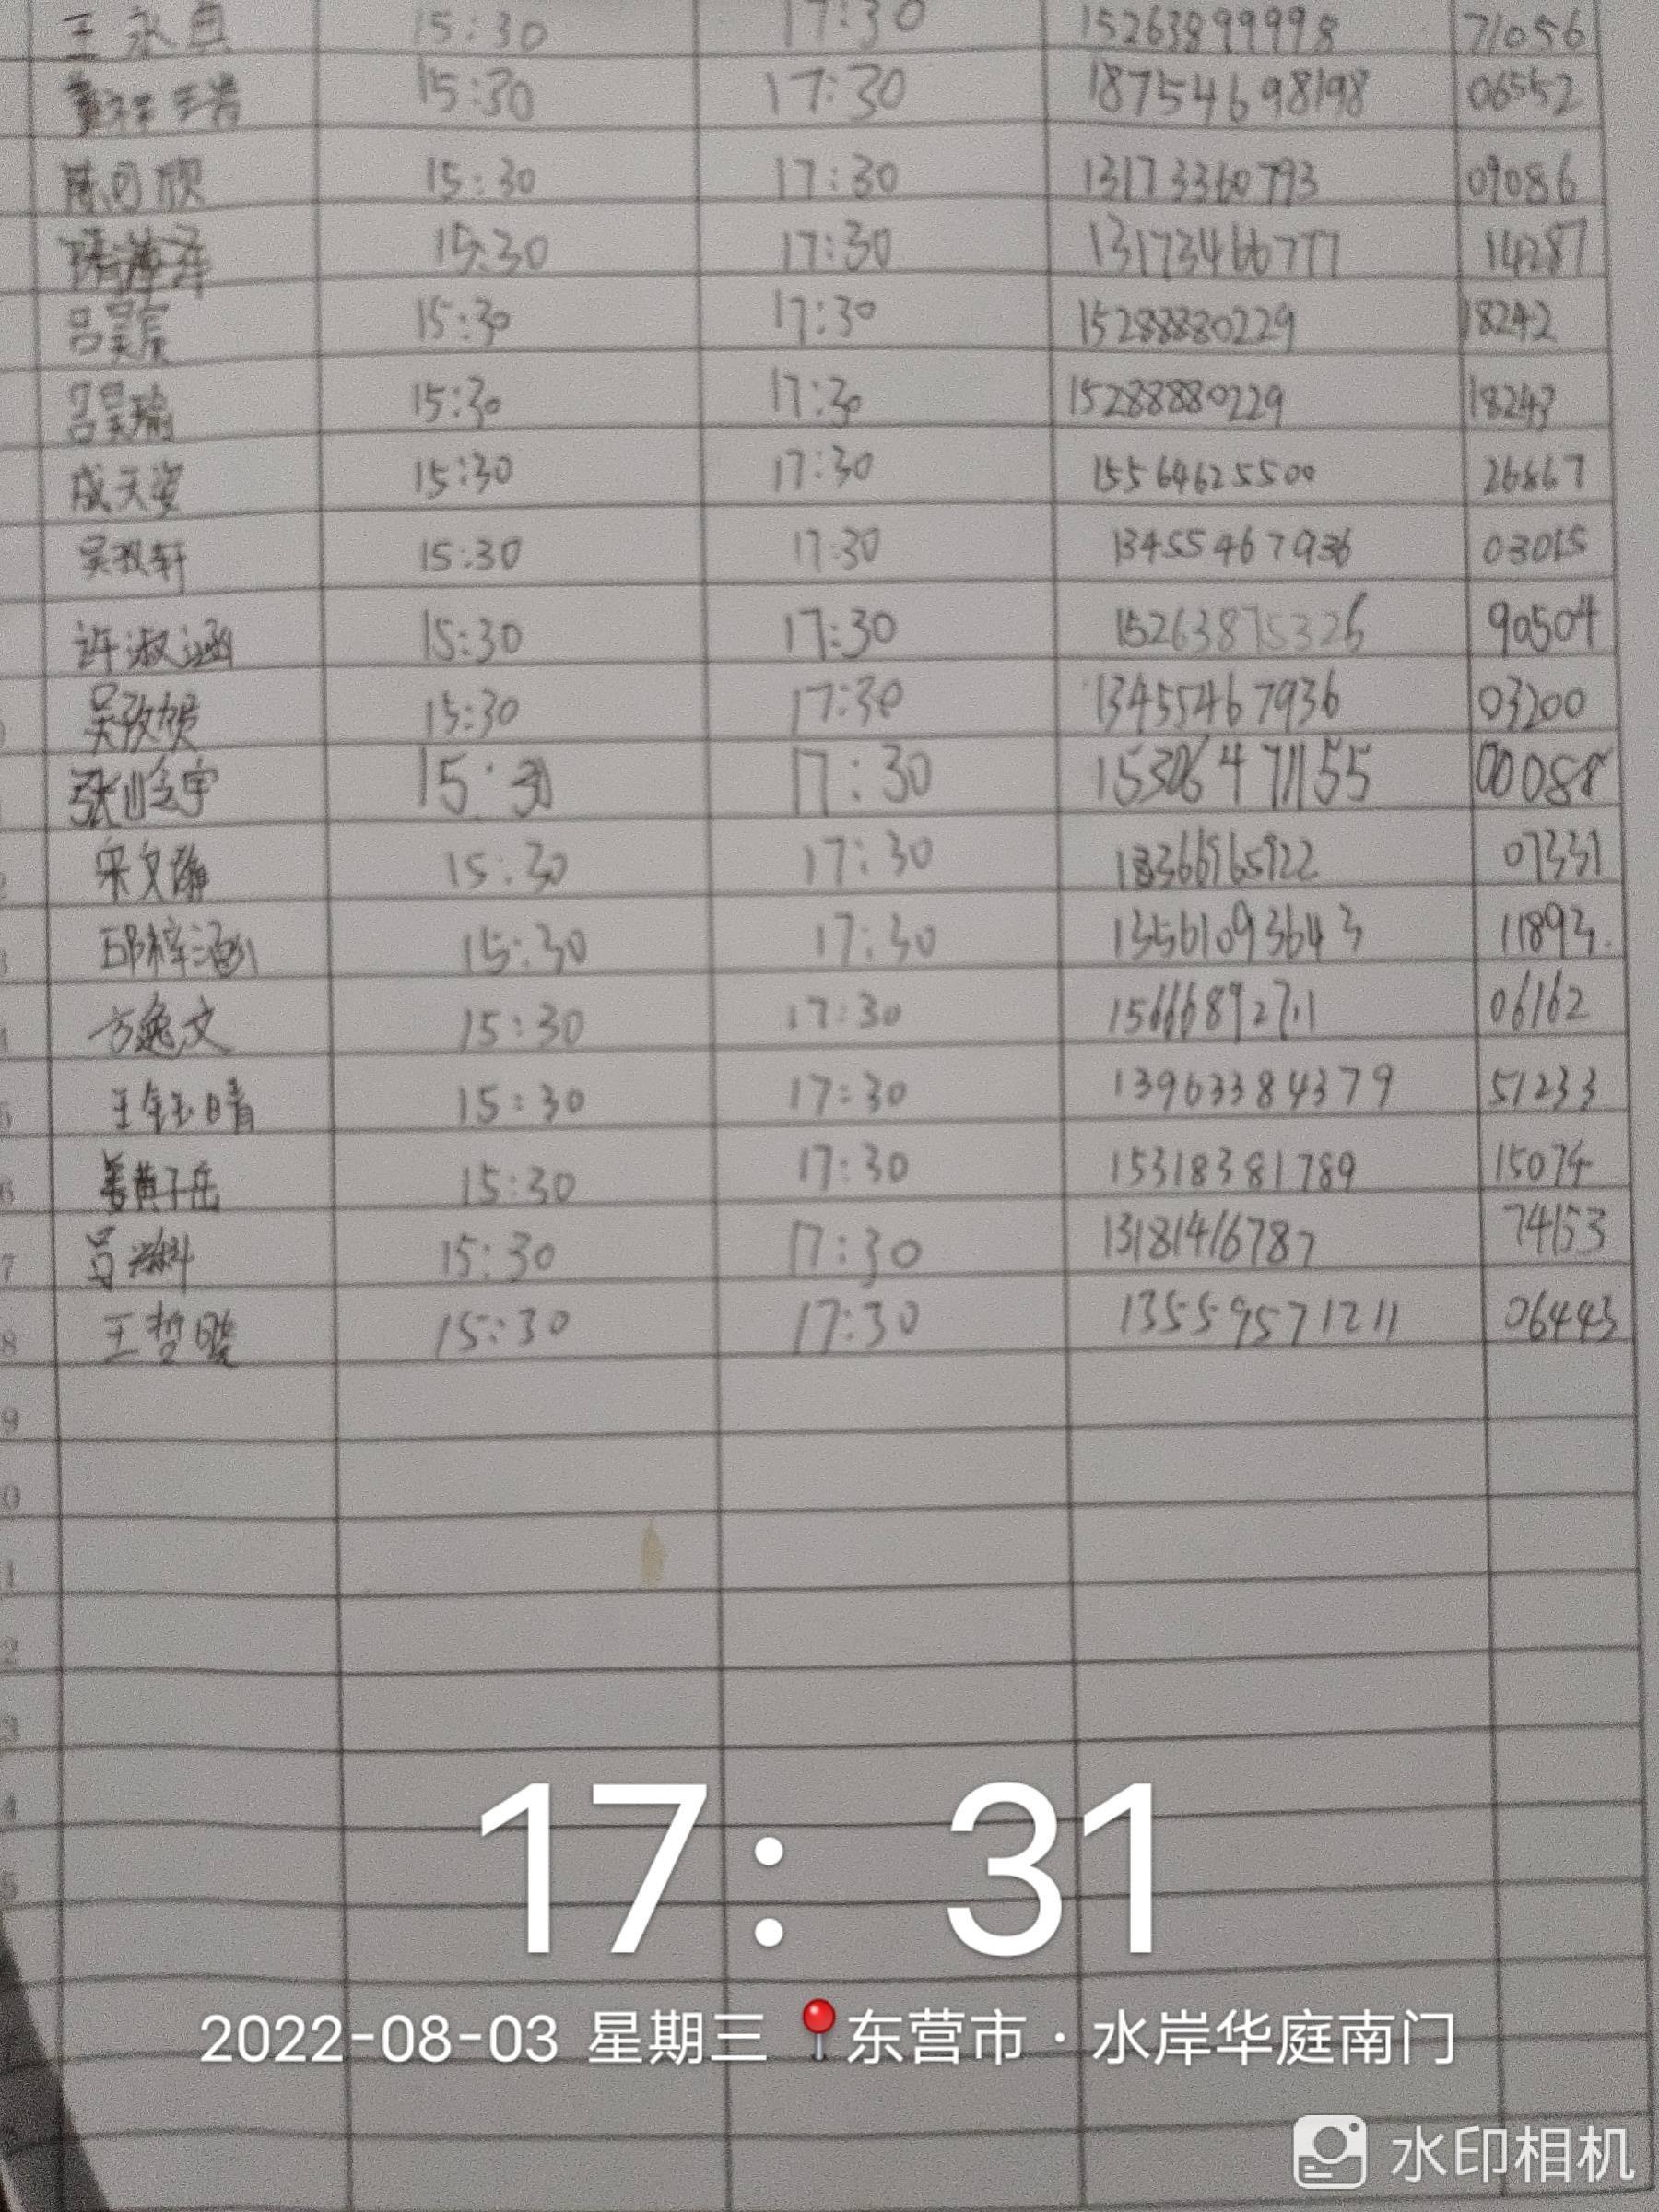 王永贞 15:30 17:30 15263899998 71056
15:30 17:30 18754698198 06552
15:30 17:30 13173360793 09086
15:30 17:30 13173466777 14287
吕昊宸 15:30 17:30 15288880229 18242
吕昊瑜 15:30 17:30 15288880229 18243
成天姿 15:30 17:30 15564625500 26867
吴孜轩 15:30 17:30 13455467936 03015
许淑涵 15:30 17:30 15263875326 90504
吴孜贺 15:30 17:30 13455467936 03200
15:30 17:30 15306471155 00088
2 宋文 15:30 17:30 18366965922 07331
3 邱梓涵 15:30 17:30 13561093643 11893.
4 方逸文 15:30 17:30 15666892711 06162
5 王钰晴 15:30 17:30 13963384379 51233
6 姜黄子岳 15:30 17:30 15318381789 15074
7 吕 15:30 17:30 13181416787 74153
8 王哲暄 15:30 17:30 13559571211 06443
9
0
1
2
3
4
5
17: 31
2022-08-03 星期三 📍东营市·水岸华庭南门
水印相机